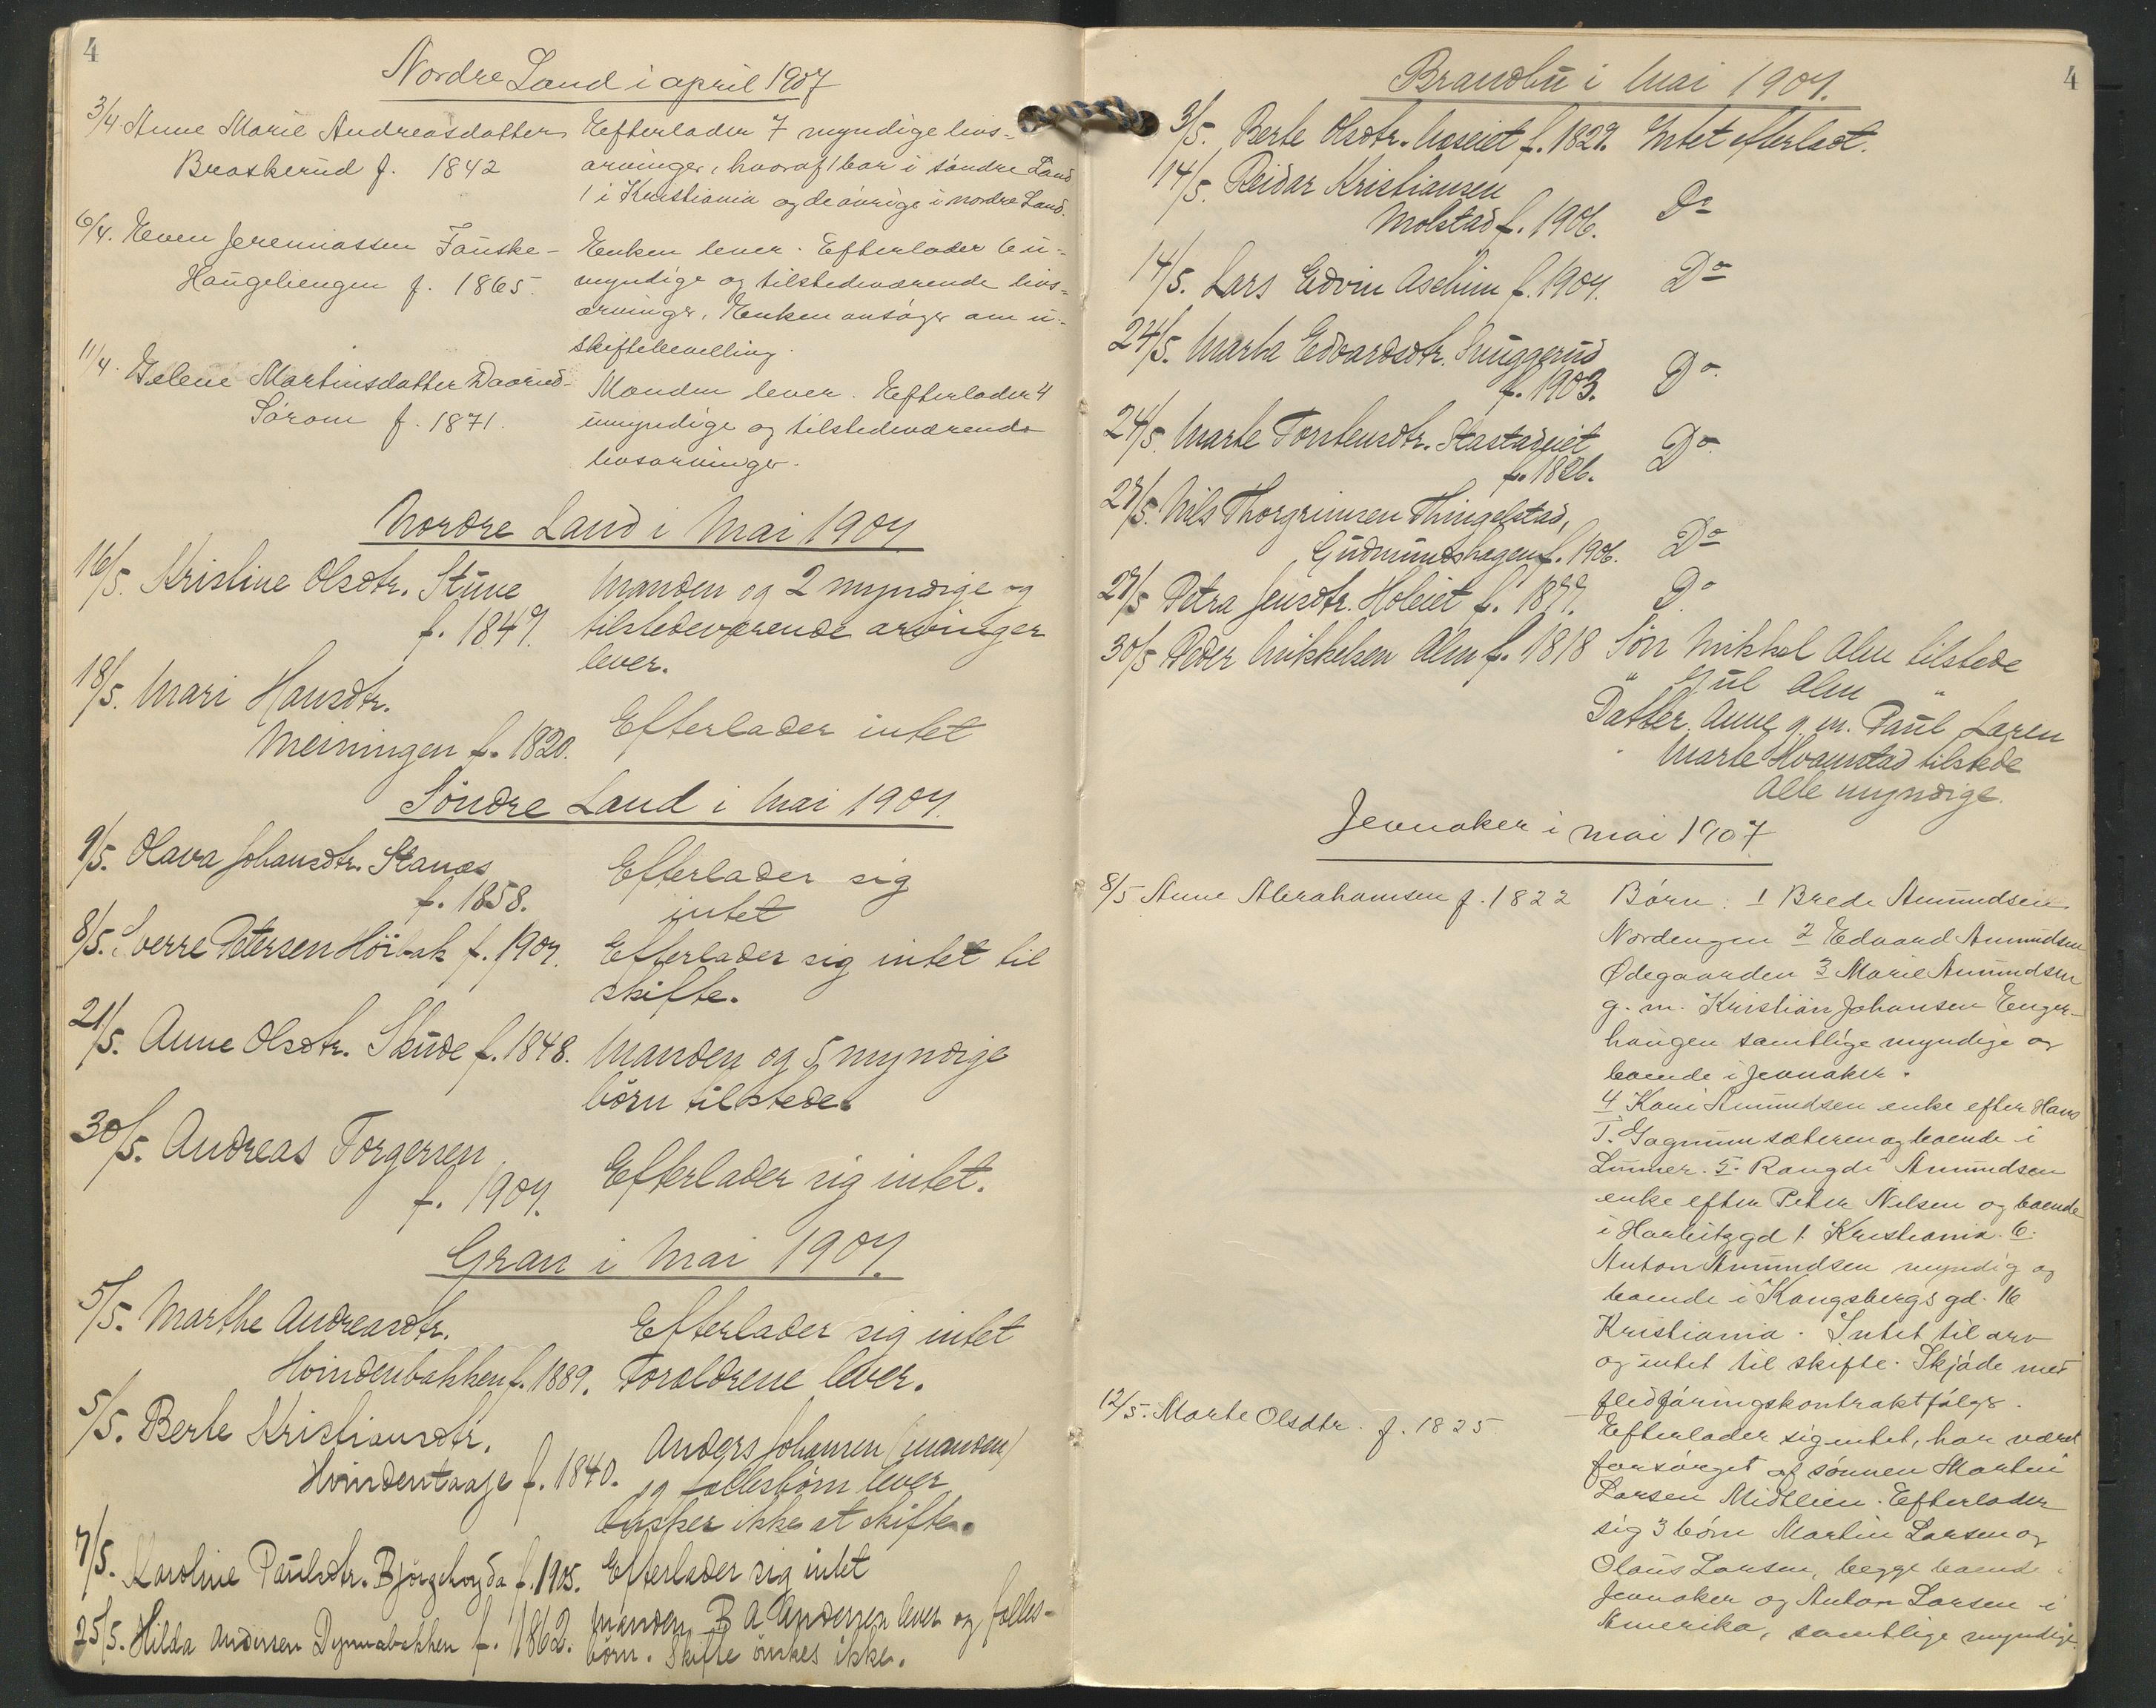 4
Nordre Land i april 1907
3/4 Anne Marie Andreasdatter
Braskerud f. 1842
Efterlader 7 myndige livs-
arvinger, hvoraf 1 bor i søndre Land
1 i Kristiania og de øvrige i nordre Land.
6/4. Even Jeremiassen Fauske-
Haugeliengen f. 1865.
Enken lever. Efterlader 6 u-
myndige og tilstedeværende livs-
arvinger. Enken ansøger om u-
skiftebevilling.
11/4. Helene Martinsdatter Daarud-
Sørom f. 1871.
Manden lever. Efterlader 4
umyndige og tilstedeværende
livsarvinger.
Nordre Land i Mai 1907
16/5. Kristine Olsdtr. Stuve
f. 1847.
Manden og 2 myndige og
tilstedeværende arvinger
lever.
18/5. Mari Hansdtr.
Meiningen f. 1820.
Efterlader intet
Søndre Land i Mai 1907.
9/5. Olava Johansdtr. Stanæs
f. 1858.
Efterlader sig
intet
8/5. Sverre Petersen Höibak f. 1907.
Efterlader sig intet til
skifte.
21/5. Anne Olsdtr. Skude f. 1848.
Manden og 5 myndige
börn tilstede.
30/5. Andreas Torgersen
f. 1907.
Efterlader sig intet.
Gran i Mai 1907.
5/5. Marthe Andreasdtr.
Hvindenbakken f. 1889.
Efterlader sig intet
Forældrene lever.
5/5. Berte Kristiansdtr.
Hvindentaaje f. 1840.
Anders Johansen (manden)
og fællesbörn lever
önsker ikke at skifte.
7/5. Karoline Paulsdtr. Bjørgehogda f. 1905.
Efterlader sig intet
25/5. Hilda Andersen Dynnabakken f. 1862.
Manden B A Andersen lever og fælles-
börn. Skifte önskes ikke.
4
Brandbu i Mai 1907.
3/5. Berte Olsdtr. Moseiet f. 1829. Intet efterladt.
14/5. Reidar Kristiansen
Molstad f. 1906. Do
14/5. Lars Edvin Aschim f. 1907. Do
24/5. Marta Edvardsdtr. Snuggerud
f. 1903. Do.
24/5. Marte Torstensdtr. Stastadeiet
f. 1826. Do.
27/5. Nils Thorgrimsen Thingelstad,
Gudmundshagen f. 1906. Do
27/5 Petra Jensdtr. Holeiet f. 1877. Do
30/5 Peder Mikkelsen Alm f. 1818 Sön Mikkel Alm tilstede
" Gul Alm "
Datter. Anne g. m. Paul Lasen
" Marte Hvamstad tilstede
Alle myndige.
Jevnaker i mai 1907
8/5 Anne Abrahamsen f. 1822
Børn: 1 Brede Amundsen
Nordengen 2 Edvard Amundsen
Ødegaarden 3 Marie Amundsen
g. m. Kristian Johansen Enger-
haugen samtlige myndige og
boende i Jevnaker.
4 Kari Amundsen enke efter Hans
T. Gagnumsæteren og boende i
Lunner. 5. Rangdi Amundsen
enke efter Peter Nilsen og boende
i Harbitzgd 1 Kristiania. 6.
Anton Amundsen myndig og
boende i Kongsbergs gd. 16
Kristiania. Intet til arv
og intet til skifte. Skjøde med
fledføringskontrakt følger.
12/5. Marte Olsdtr. f. 1825
Efterlader sig intet, har været
forsørget af sønnen Martin
Larsen Midtlien. Efterlader
sig 3 børn Martin Larsen og
Olaus Larsen, begge boende i
Jevnaker og Anton Larsen i
Amerika, samtlige myndige.